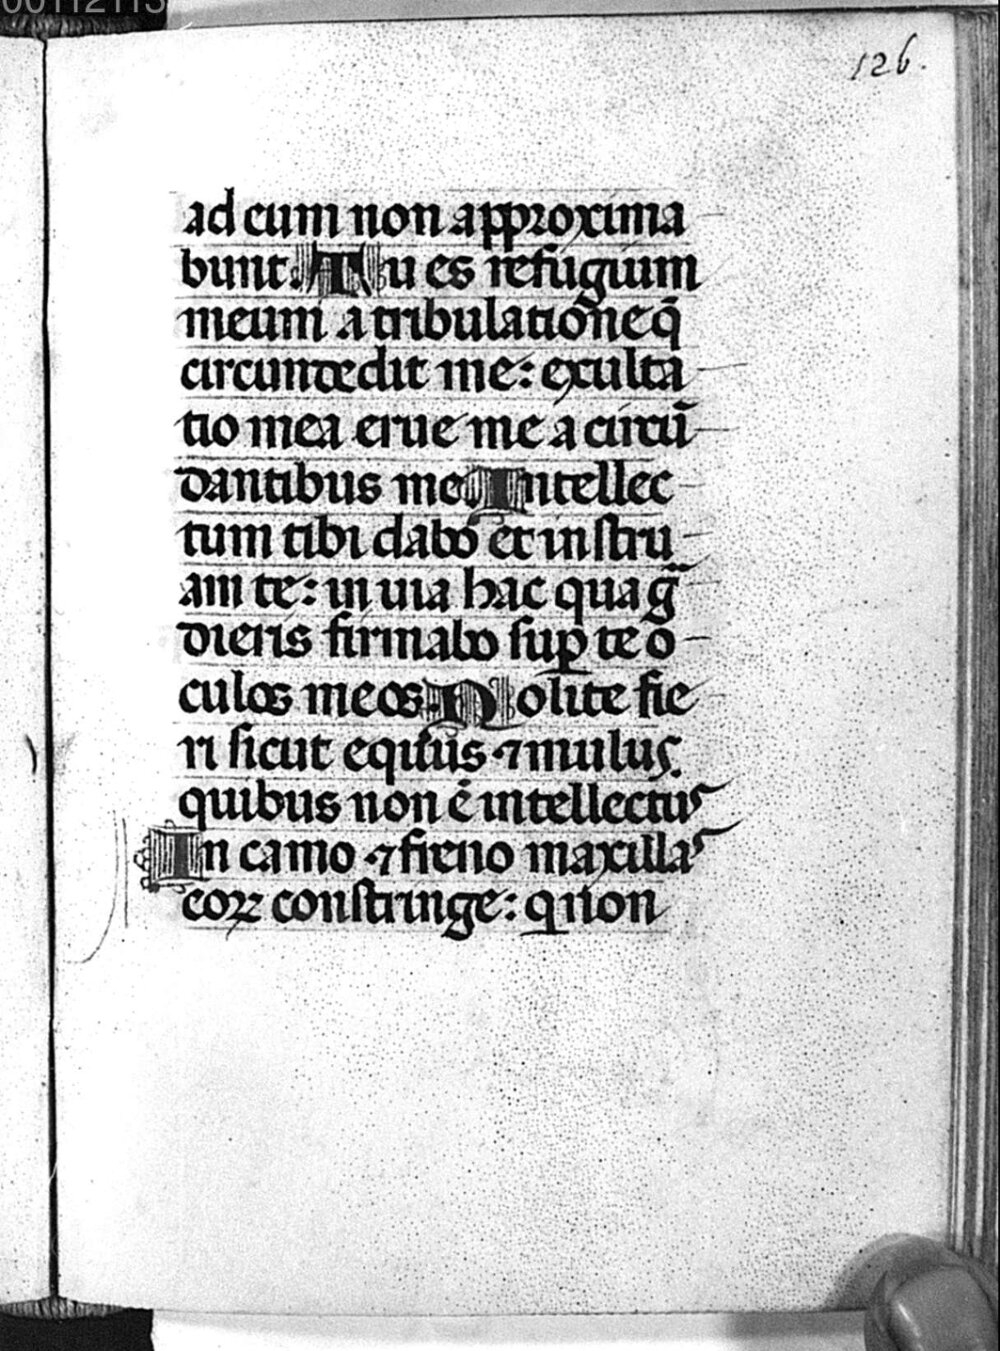 00112113
126.
ad eum non approxima
bunt. Tu es refugium
meum a tribulatione q̄
circumdedit me: exulta
tio mea erue me a circū
dantibus me. Intellec
tum tibi dabo et instru
am te: in uia hac qua g̃
dieris firmabo suꝑ te o
culos meos. Nolite fie
ri sicut equus ⁊ mulus.
quibus non ē intellectus
In camo ⁊ freno maxillas
eoꝝ constringe: qui non